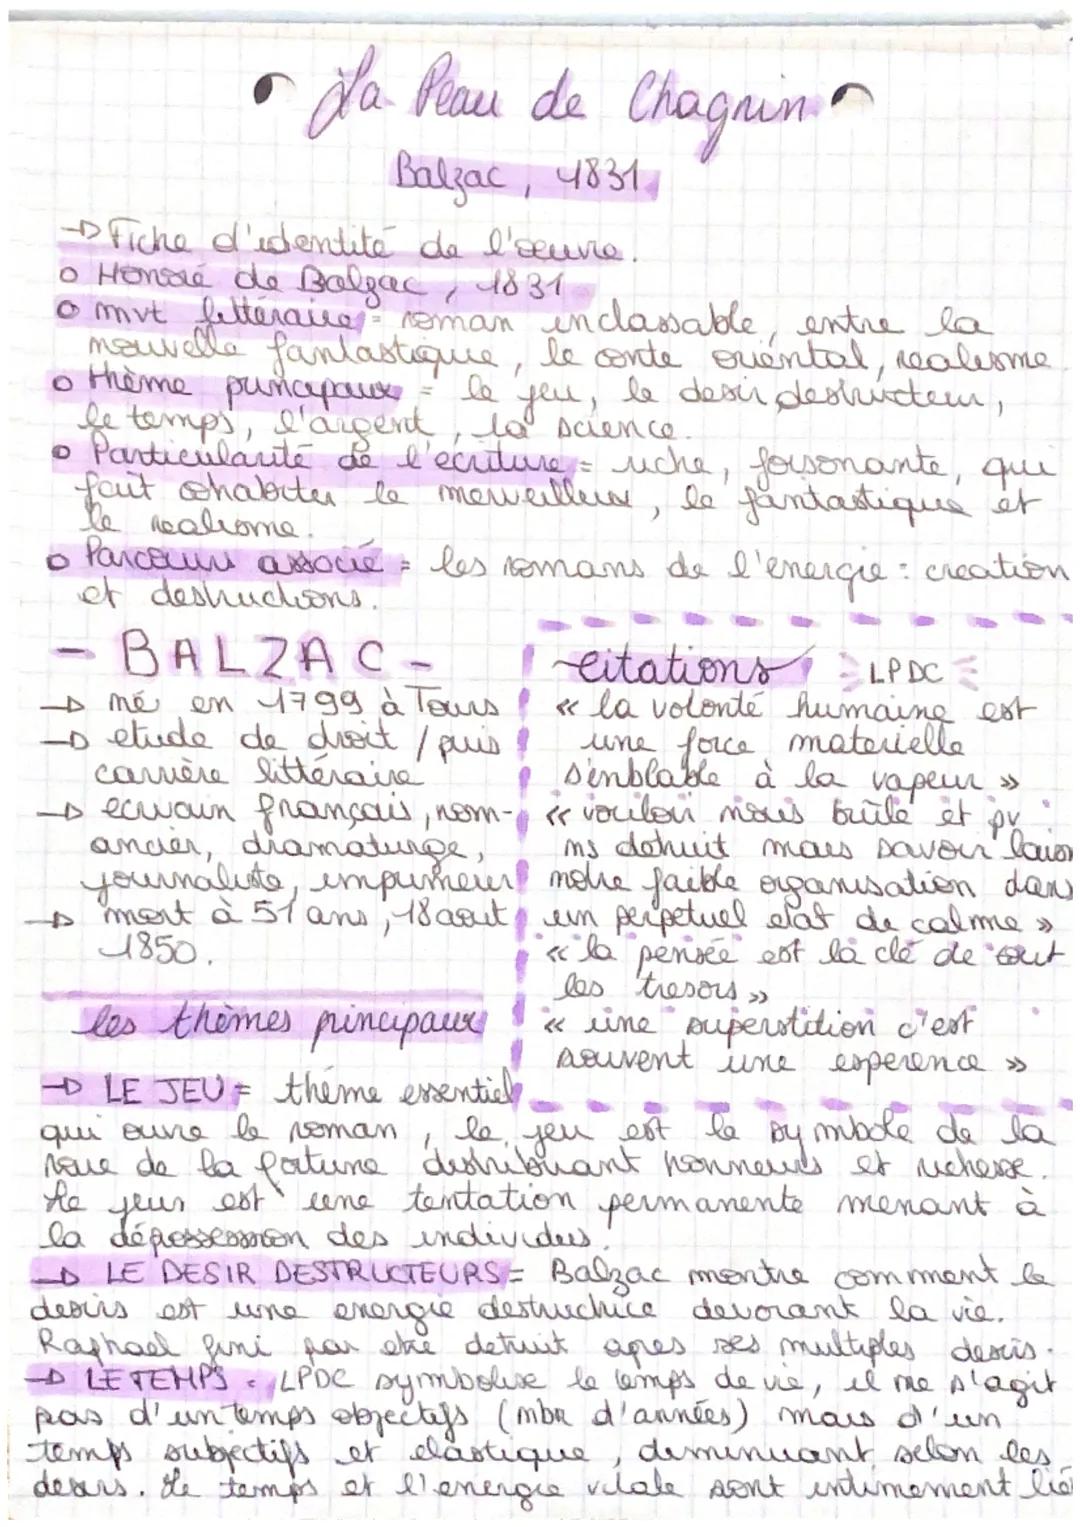 La Peau de Chagrin
Balzac, 1831
→ Fiche d'identité de l'œuvre.
o Honoré de Balzac, 1831
o mvt littéraire = roman inclassable, entre la
nouvelle fantastique, le conte oriental, realisme
o thème principaux = le jeu, le desir destructeur,
le temps, l'argent, la science.
o Particularité de l'ecriture = riche, foisonante, qui
fait cohabiter le merveilleux, le fantastique et
le realisme.
o Parcours associé = les romans de l'énergie : creation
et destructions.
- BALZAC -
→ né en 1799 à Tours
→ etude de droit / puis
carrière littéraire
→ ecrivain français, rom-
ancier, dramaturge,
journaliste, imprimeur
→ mort à 51 ans, 18 aout
1850.
Citations LPDC
« la volonté humaine est
une force materielle
semblable à la vapeur »
« vouloir nous brûle et pv
ns detruit mais savoir laiss
notre faible organisation dans
un perpetuel etat de calme »
« la pensée est la clé de tout
les tresors »
« une superstition c'est
souvent une esperence »
les thèmes principaux
→ LE JEU = thème essentiel
qui ouvre le roman, le jeu est le symbole de la
roue de la fortune distribuant honneurs et richesse.
Le jeux est une tentation permanente menant à
la dépossession des individus.
→ LE DESIR DESTRUCTEURS = Balzac montre comment le
desirs est une energie destructrice devorant la vie.
Raphael fini par etre detruit apres ses multiples desirs.
→ LE TEMPS = LPDC symbolise le temps de vie, il ne s'agit
pas d'un temps objectifs (nbr d'années) mais d'un
temps subjectifs et elastique, diminuant selon les
desirs. Le temps et l'energie vitale sont intimement lié